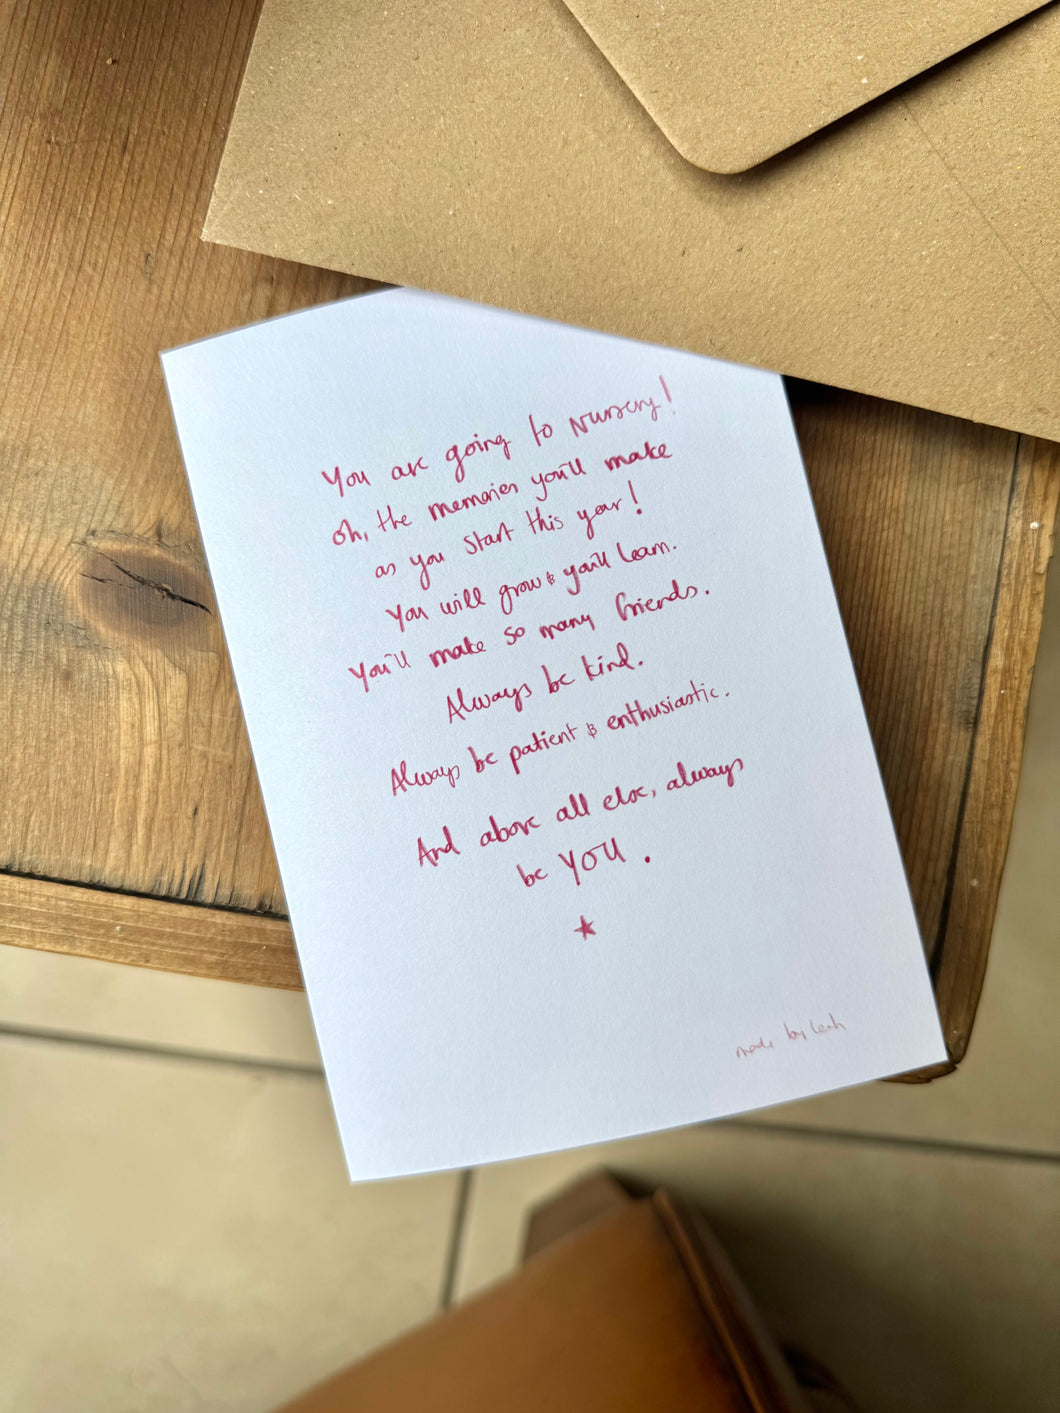 You are going to Nursery!
oh, the memories you'll make
as you start this year!
You will grow & you'll learn.
You'll make so many friends.
Always be kind.
Always be patient & enthusiastic.
And above all else, always
be YOU.
made by Leah